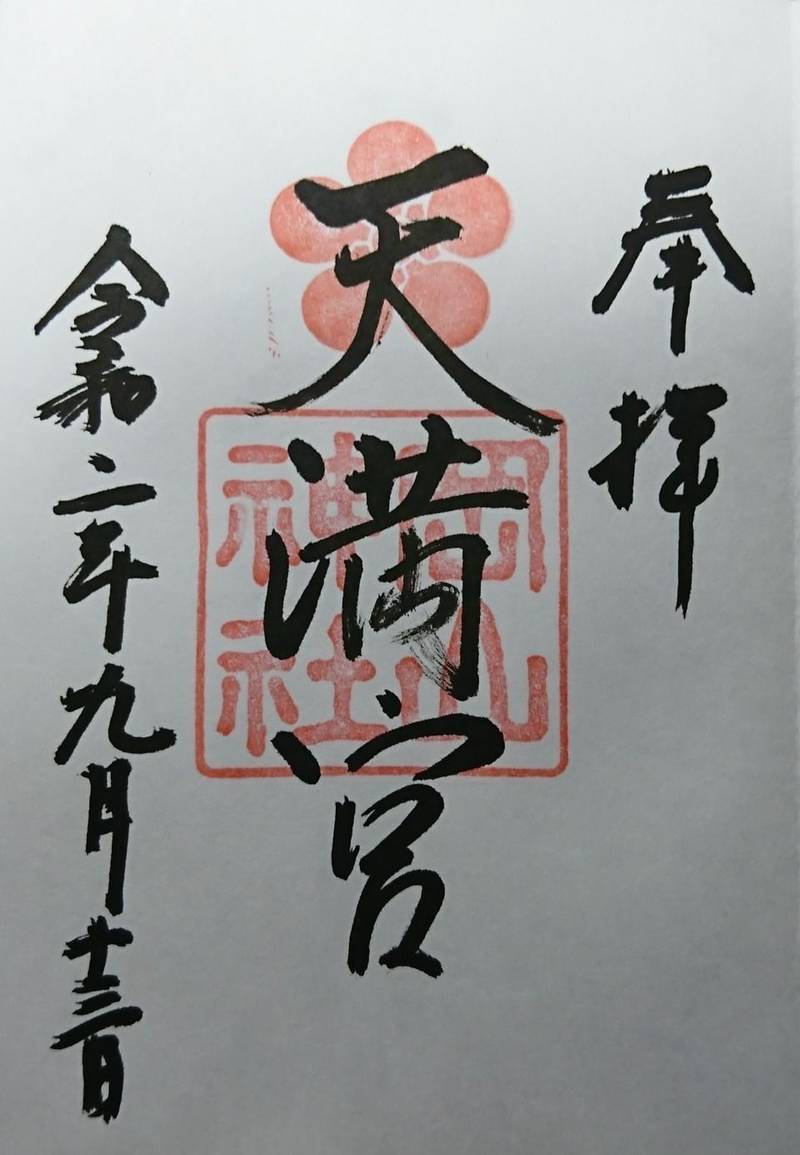 奉拝
天満宮
岡山
神社
令和二年九月十三日